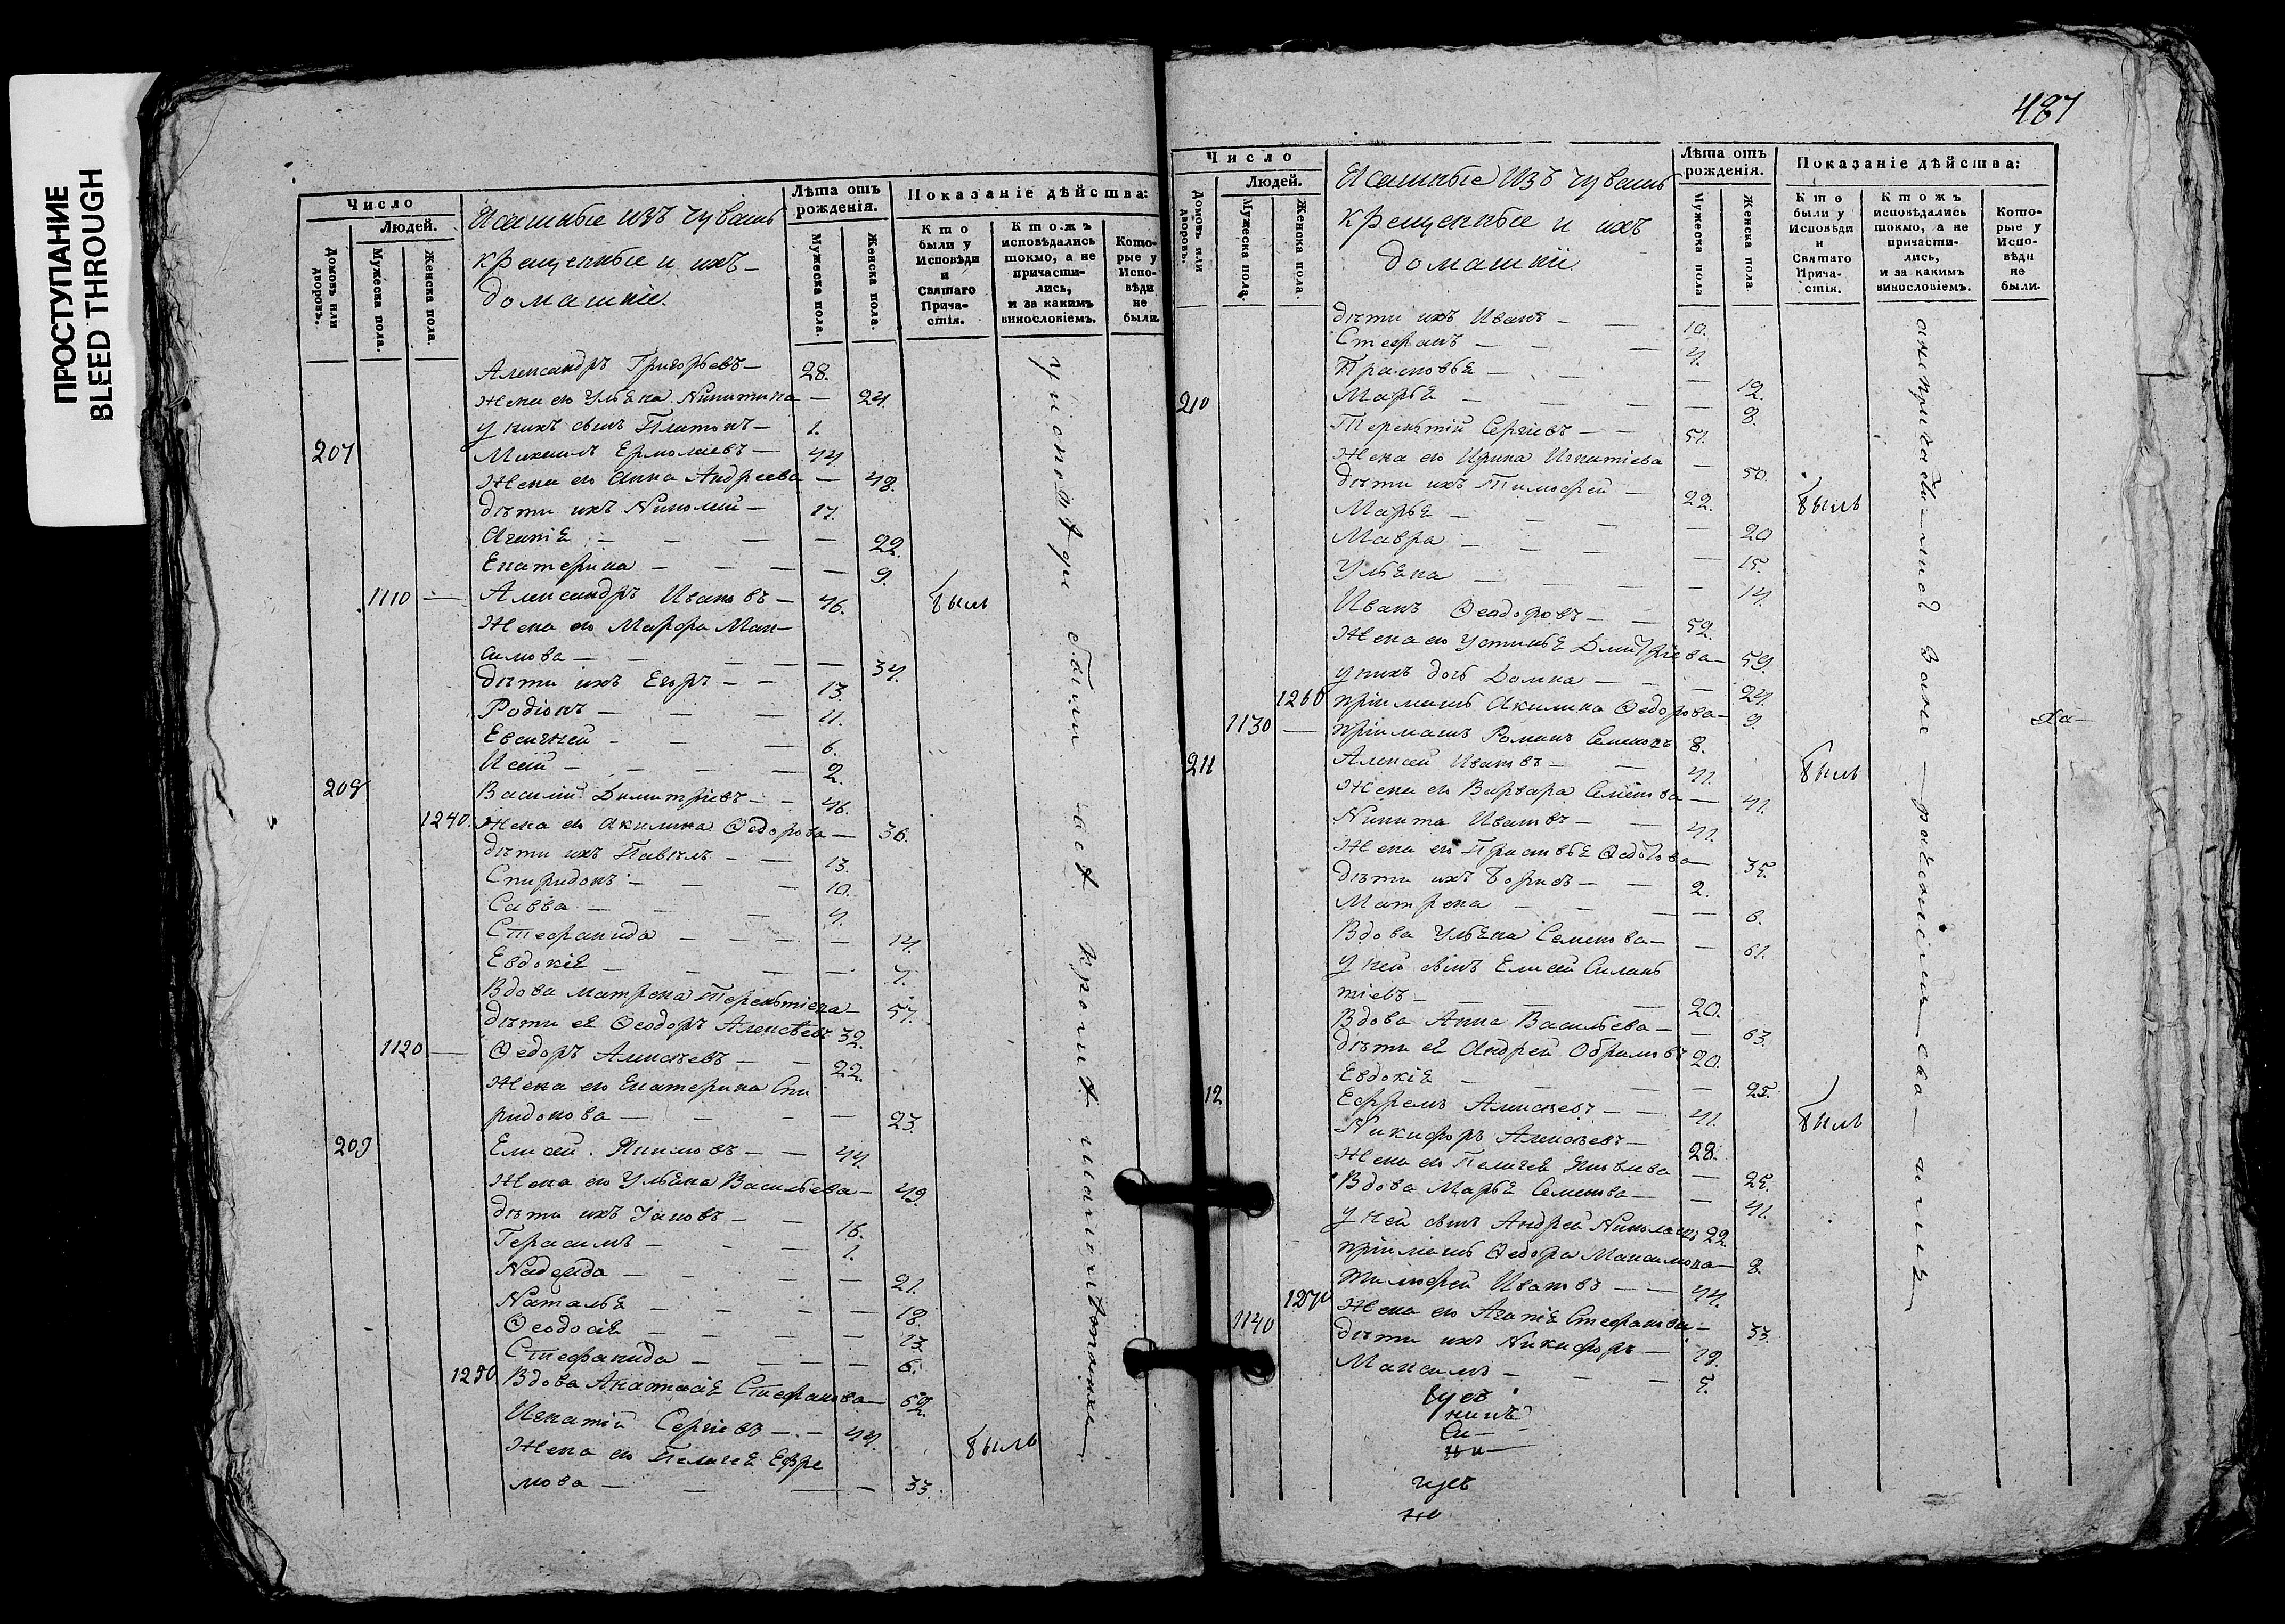 ПРОСТУПАНИЕ
BLEED THROUGH
Число
Людей.
Домовъ или дворовъ.
Мужеска пола.
Женска пола.
Ясашные изъ чувашъ
крещенные и ихъ
домашніе.
Лѣта отъ рожденія.
Мужеска пола.
Женска пола.
Показаніе дѣйства:
Кто были у Исповѣди и Святаго Прича-стія.
Кто жъ исповѣдались токмо, а не причасти-лись, и за какимъ винословіемъ.
Кото-рые у Испо-вѣди не были.
Александръ Григорьевъ — 28.
Жена его Ульяна Никитина — 24.
у нихъ сынъ Платонъ — 1.
207 Михаилъ Ермолаевъ — 44
Жена его Анна Андреева — 48.
дѣти ихъ Николай — 17.
Агапія — 22.
Екатерина — 9.
1110 — Александръ Ивановъ — 46. былъ
Жена его Марфа Мак-
симова — 34.
дѣти ихъ Егоръ — 13
Родіонъ — 11.
Евсигней — 6.
Исай — 2.
208 Василій Димитріевъ — 46.
1240. Жена его Акилина Федорова — 36.
дѣти ихъ Павелъ — 13.
Спиридонъ — 10.
Савва — 4.
Стефанида — 14.
Евдокія — 7.
Вдова Матрена Терентіева — 57.
дѣти ея Феодоръ Алексѣевъ 32.
1120 — Федоръ Алексѣевъ — 22.
Жена его Екатерина Спи
ридонова — 23.
209 Елисей Якимовъ — 44.
Жена его Ульяна Васильева — 49.
дѣти ихъ Іаковъ — 16.
Герасимъ — 1.
Надежда — 21.
Наталья — 18.
Феодосія — 13.
Стефанида — 6.
1250 Вдова Анастасія Стефанова — 62.
Игнатій Сергіевъ — 44. былъ
Жена его Пелагея Ефре
мова — 33.
у исповѣди были всѣ кромѣ
487
Число
Людей.
Домовъ или дворовъ.
Мужеска пола.
Женска пола.
Ясашные изъ чувашъ
крещенные и ихъ
домашніи
Лѣта отъ рожденія.
Мужеска пола
Женска пола.
Показаніе дѣйства:
Кто были у Исповѣди и Святаго Прича-стія.
Кто жъ исповѣдались токмо, а не причасти-лись, и за какимъ винословіемъ.
Кото-рые у Испо-вѣди не были.
дѣти ихъ Иванъ — 10.
Стефанъ — 4.
Прасковья — 12.
Марья — 8.
210 Терентій Сергіевъ — 51.
Жена его Ирина Игнатіева — 50.
дѣти ихъ Тимофей — 22. былъ
Марья — 20
Мавра — 15.
Ульяна — 14.
Иванъ Феодоровъ — 52.
Жена его Устинья Дмитріева — 59.
у нихъ дочь Домна — 24.
1260 пріимышъ Акилина Федорова — 9.
1130 — пріимышъ Романъ Семеновъ 8.
211 Алексей Ивановъ — 41. былъ
Жена его Варвара Семенова — 41.
Никита Ивановъ — 41.
Жена его Прасковья Федотова — 35.
дѣти ихъ Борисъ — 2.
Матрена — 6.
Вдова Ульяна Семенова — 61.
у ней сынъ Елисей Силан
тіевъ — 20.
Вдова Анна Васильева — 63.
дѣти ея Андрей Обрамовъ 20.
Евдокія — 25.
12 Ефремъ Алексѣевъ — 41. былъ
Никифоръ Алексѣевъ — 28.
Жена его Пелагея Яковлева — 25.
Вдова Марья Семенова — 41.
у ней сынъ Андрей Николаевъ 22.
пріимышъ Федора Максимова — 8.
Тимофей Ивановъ — 44.
1270 Жена его Агапія Стефанова — 33.
1140 дѣти ихъ Никифоръ — 19.
Максимъ — 5.